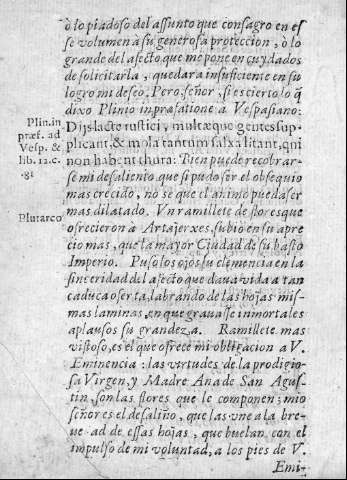 ò lo piadoso del assunto que consagro en es
se volumen à su generosa proteccion, ò lo
grande del afecto que me pone en cuydados
de solicitarla, quedara insuficiente en su
logro mi deseo. Pero señor, si es cierto lo q̃
dixo Plinio in præfatione à Vespasiano:
Plin. in
Dijs lacte rustici, multæque gentes sup-
præf. ad
plicant, & mola tantum salsa litant, qui
Vesp. &
non habent thura: Bien puede recobrar-
lib. 12. c.
se mi desaliento que si pudo ser el obsequio
81
mas crecido, no se que el animo pueda ser
mas dilatado. Vn ramillete de flores que
Plutarco
ofrecieron à Artajerxes, subio en su apre
cio mas, que la mayor Ciudad de su basto
Imperio. Puso los ojos su clemencia en la
sinceridad del afecto que daua vida a tan
caduca oferta, labrando de las hojas mis-
mas laminas, en que grauasse inmortales
aplausos su grandeza. Ramillete mas
vistoso, es el que ofrece mi obligacion a V.
Eminencia: las virtudes de la prodigio-
sa Virgen, y Madre Ana de San Agus-
tin, son las flores que le componen; mio
señor es el desaliño, que las vne a la bre-
ue ad de essas hojas, que buelan con el
impulso de mi voluntad, a los pies de V.
Emi-